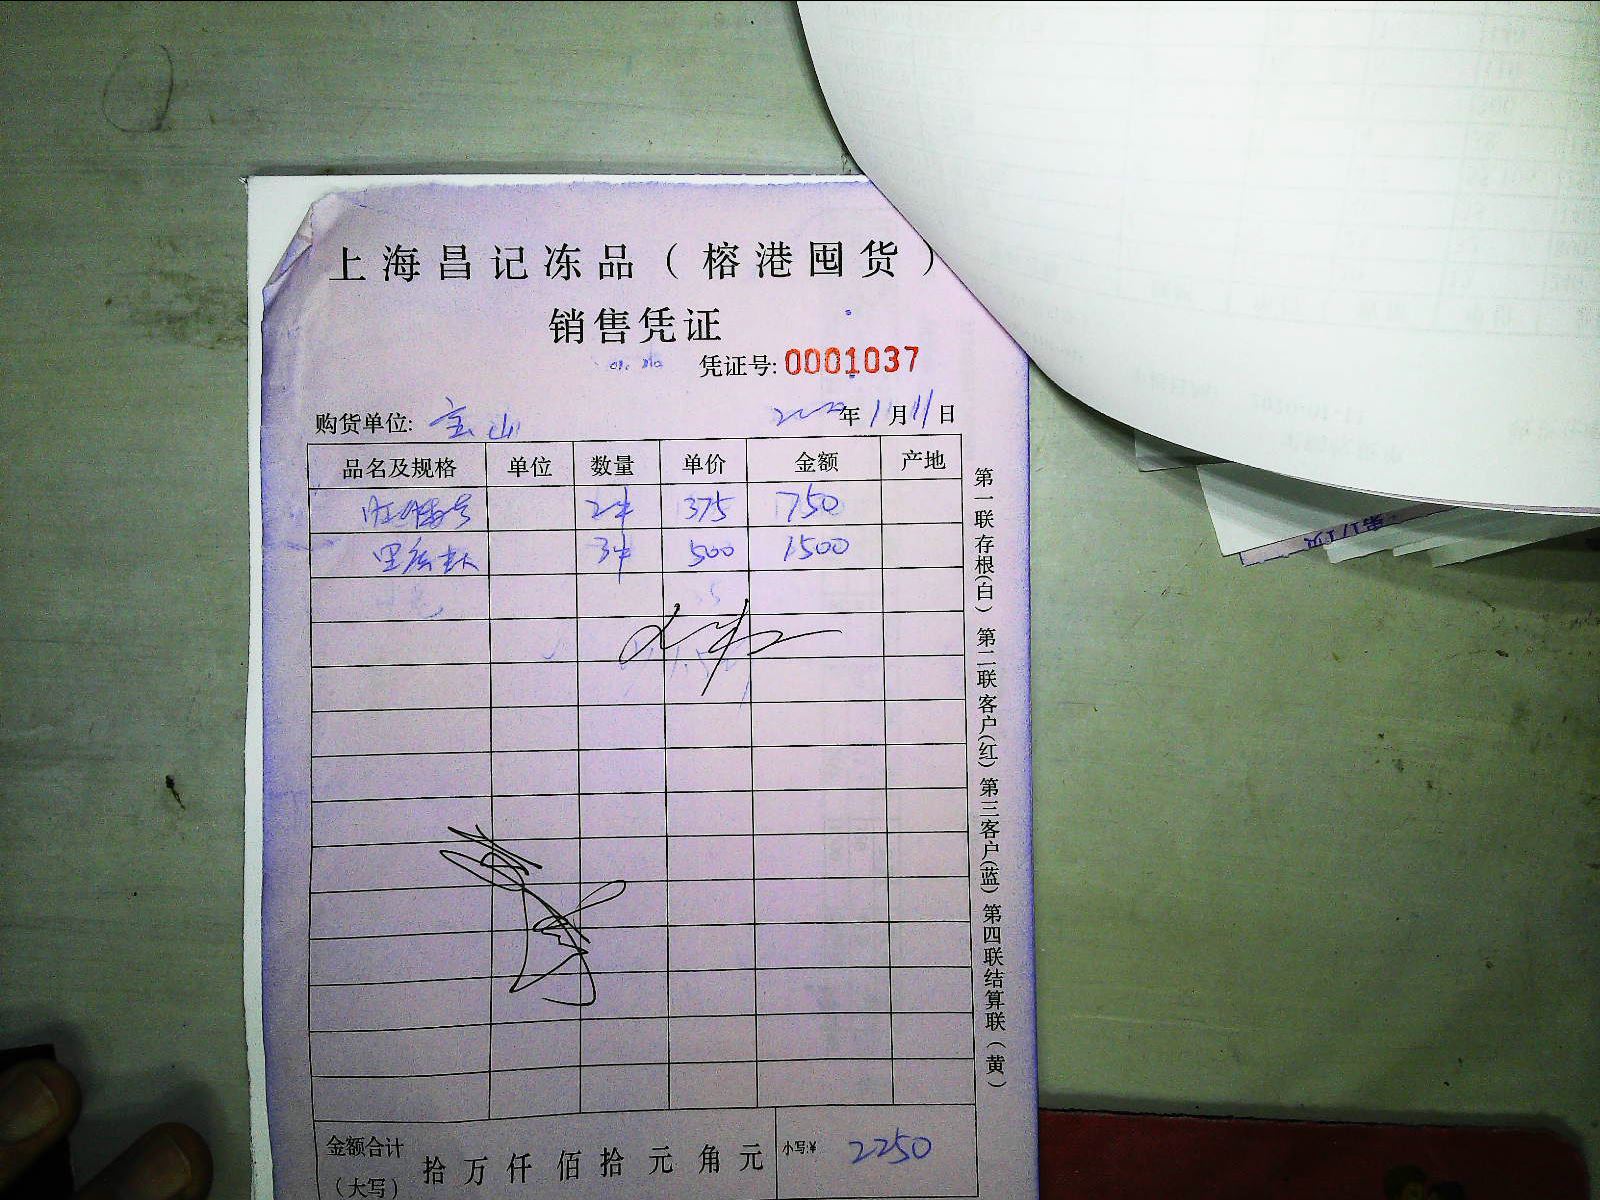 上海昌记冻品（榕港囤货）
销售凭证
凭证号: 0001037
购货单位: 宝山 2022年11月11日
品名及规格 单位 数量 单价 金额 产地
2件 375 750
3件 500 1500
金额合计（大写） 拾 万 仟 佰 拾 元 角 元 小写:¥ 2250
第一联存根(白) 第二联客户(红) 第三客户(蓝) 第四联结算联(黄)